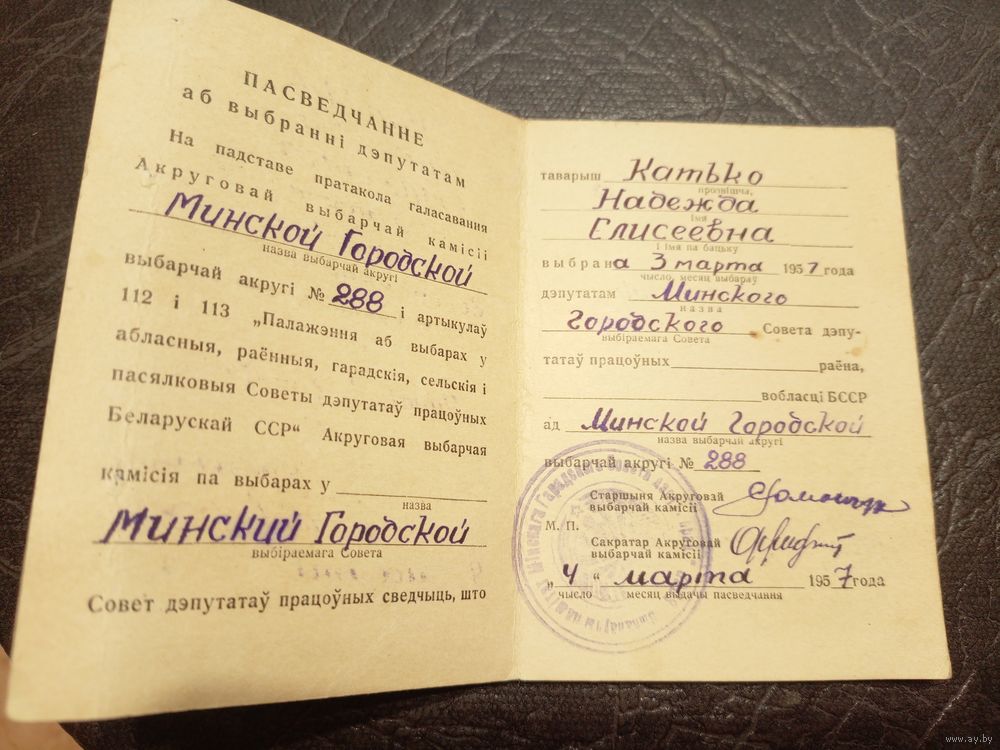 ПАСВЕДЧАННЕ
аб выбранні дэпутатам
На падставе пратакола галасавання
Акруговай выбарчай камісіі
Минской Городской
назва выбарчай акругі
выбарчай акругі № 288 і артыкулаў
112 і 113 „Палажэння аб выбарах у
абласныя, раённыя, гарадскія, сельскія і
пасялковыя Советы дэпутатаў працоўных
Беларускай ССР“ Акруговая выбарчая
камісія па выбарах у
назва
Минский Городской
выбіраемага Совета
Совет дэпутатаў працоўных сведчыць, што
таварыш Катько
прозвішча,
Надежда
імя
Елисеевна
і імя па бацьку
выбрана 3 марта 1957 года
чысло, месяц выбараў
дэпутатам Минского
назва
Городского Совета дэпу-
выбіраемага Совета
татаў працоўных раёна,
вобласці БССР
ад Минской Городской
назва выбарчай акругі
выбарчай акругі № 288
Старшыня Акруговай
выбарчай камісіі
М. П.
Сакратар Акруговай
выбарчай камісіі
„4“ марта 1957 года
чысло месяц выдачы пасведчання
www.ay.by